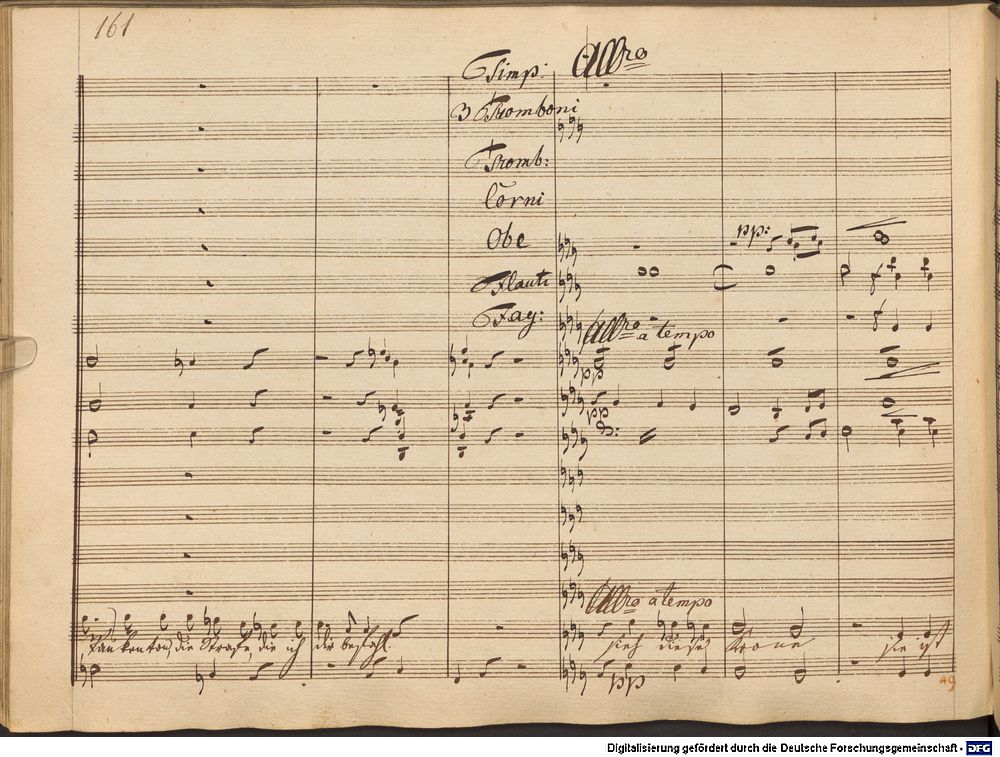 161
Timp: Allro
3 Tromboni
Tromb:
Corni
Obe
pp:
Flauti
Fag:
Allro a tempo
pp
pp
Allro a tempo
die Straße, die ich dir befahl.
sieh diese Krone sie ist
pp
49
Digitalisierung gefördert durch die Deutsche Forschungsgemeinschaft - DFG